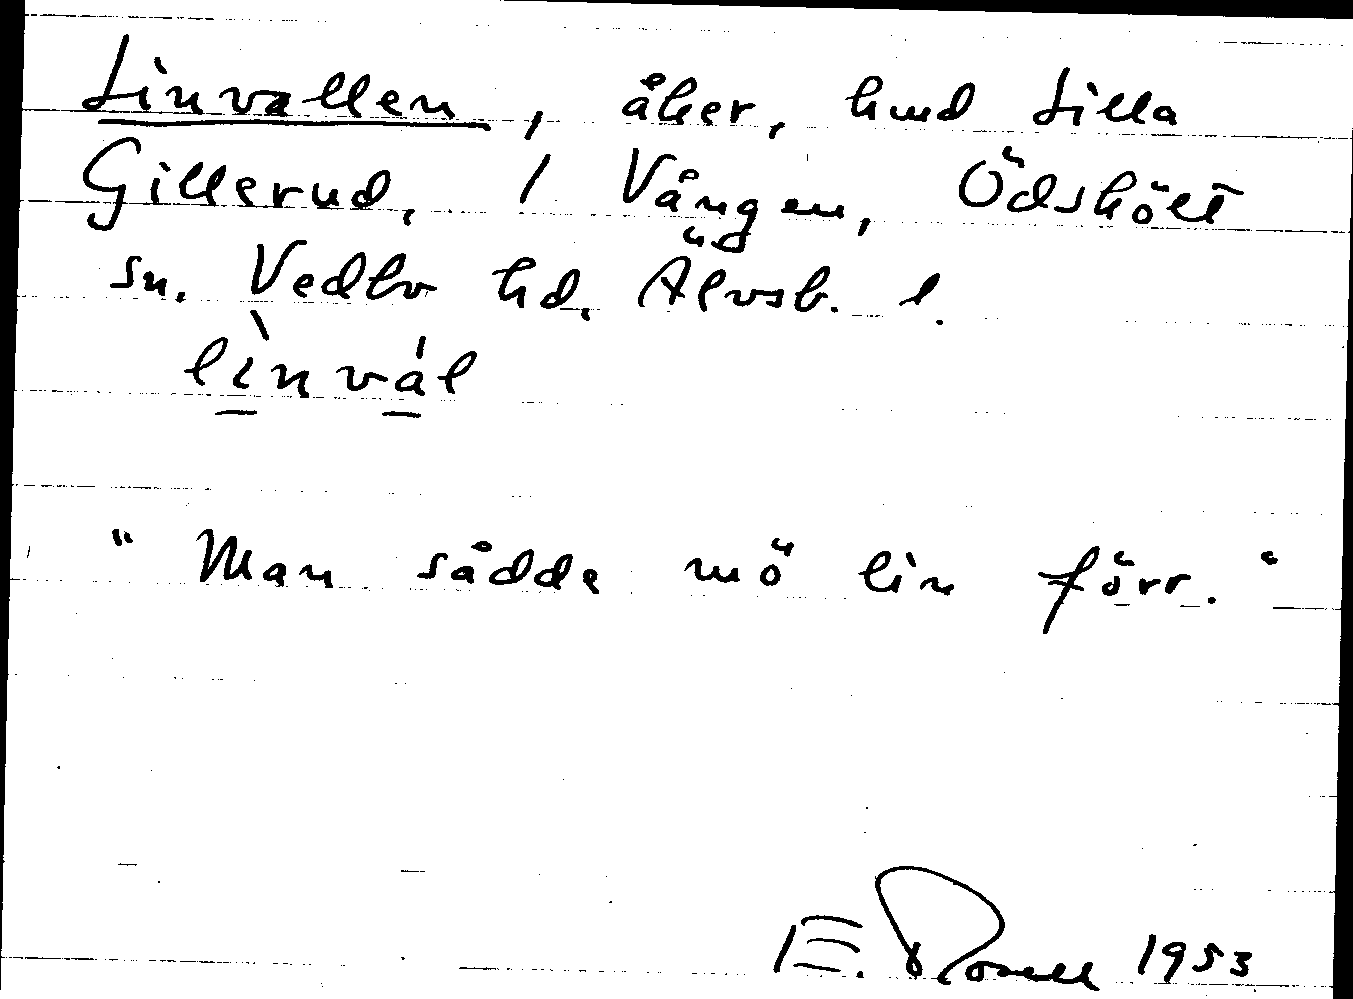 Linvallen, åker, hmd Lilla
Gillerud, / Vången, Ödskölt
sn. Vedbo hd. Älvsb. l.
lìnvál
"Man sådde mö lin förr."
E. 1953